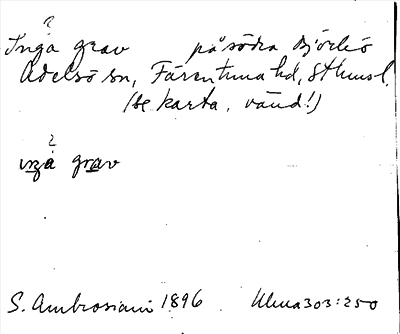 ?
Inga grav på södra Björkö
Adelsö sn, Färentuna hd, Sthms l.
(se karta, vänd!)
?
ıŋa grav
S. Ambrosiani 1896 Ulma 303:250